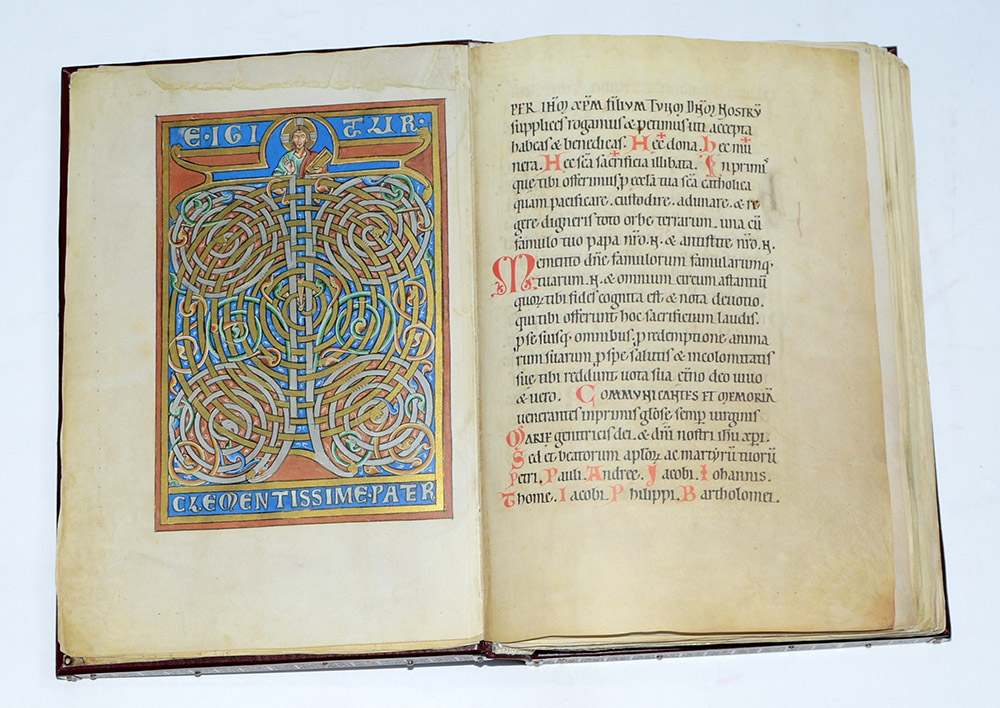 E·IGI TUR·
CLEMENTISSIME·PATR
PER IHM XPM FILIUM TUUM DNM NOSTRŪ
supplices rogamus & petimus uti accepta
habeas & benedicas. Hec dona. hec mu
nera. Hec scā sacrificia illibata. Inprimis
que tibi offerimus p ecclā tua scā catholica
quam pacificare. custodire. adunare. & re
gere digneris toto orbe terrarum. una cū
famulo tuo papa nrō. N. & antistite nrō. N.
Memento dnē famulorum famularumq.
tuarum. N. & omnium circum astantiū
quor. tibi fides cognita est & nota devotio.
qui tibi offerunt hoc sacrificium laudis.
p se suisq. omnibus. p redemptione anima
rum suarum. p spe salutis & incolomitatis
sue tibi reddunt vota sua etno deo uiuo
& uero. COMMUNICANTES ET MEMORIĀ
uenerantes inprimis glōse semp uirginis
MARIE genitricis dei. & dnī nostri ihu xpi.
Sed et beatorum aplor. ac martyrū tuorū
Petri. Pauli. Andree. Jacobi. Iohannis.
Thome. Iacobi. Philippi. Bartholomei.